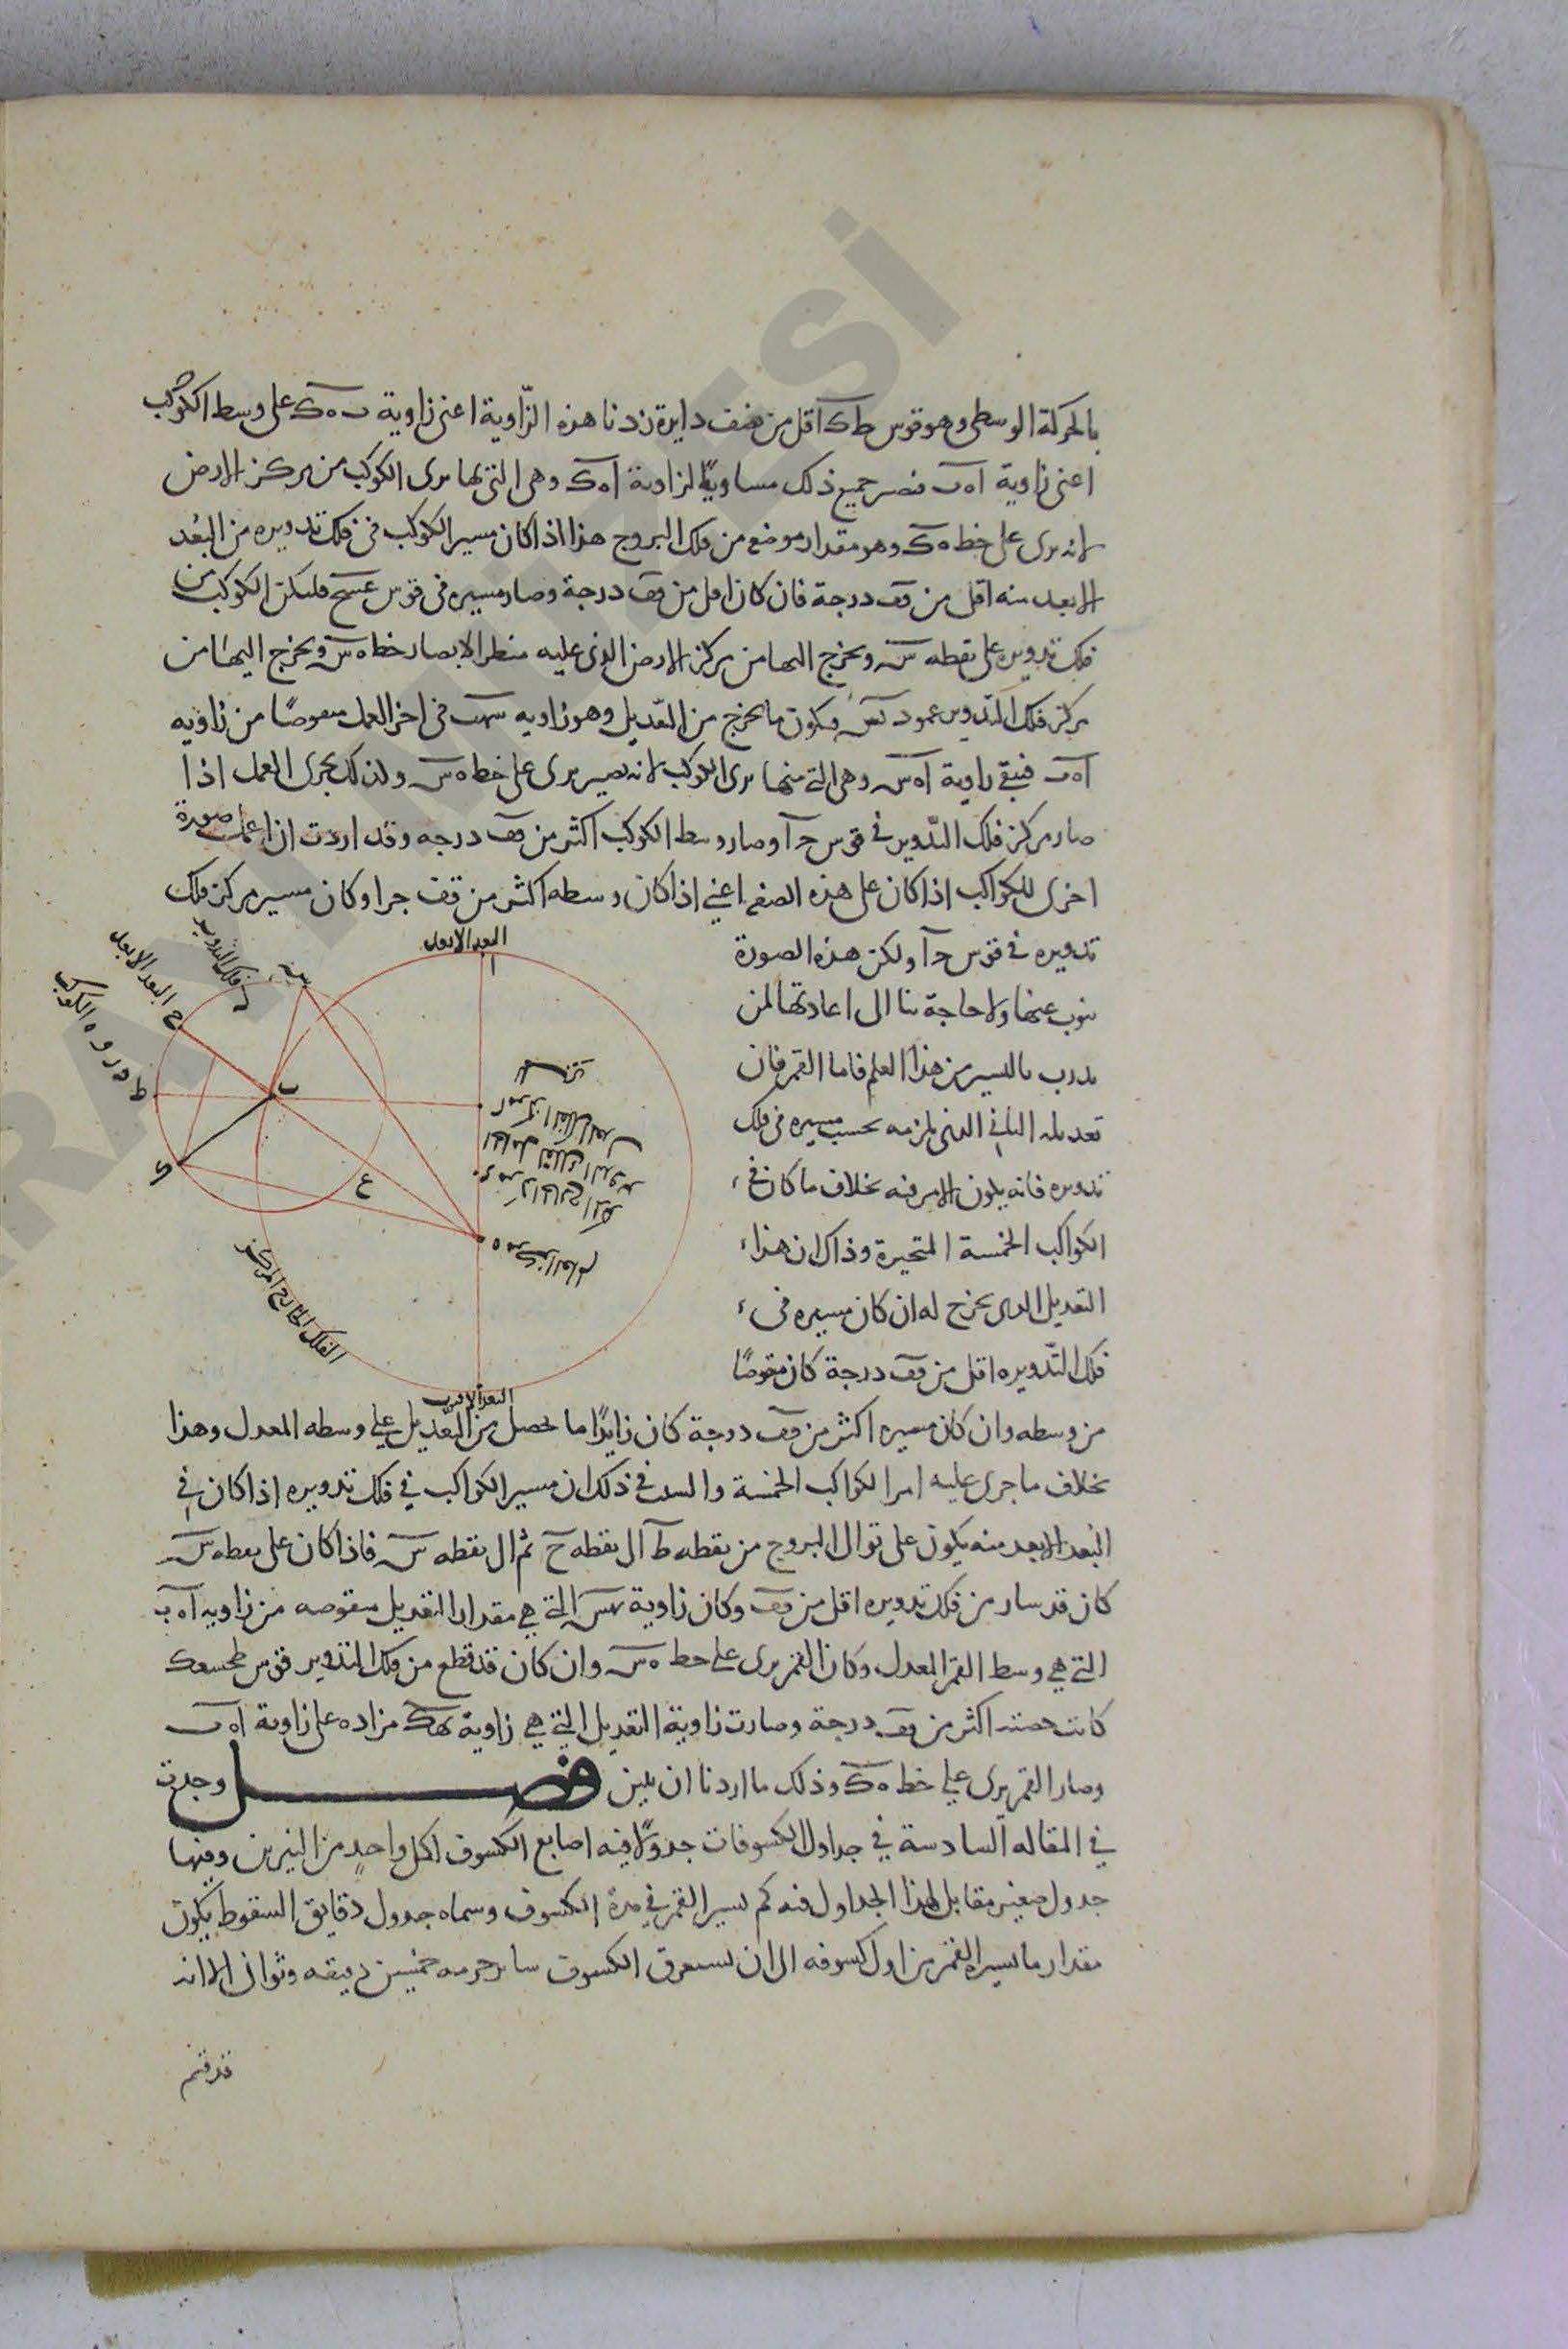 بالحركة الوسطى وهو قوس طك اقل من نصف دايرة زدنا هذه الزّاوية اعنى زاوية ب ه ك على وسط الكوكب
اعنى زاوية اه ب فيصير جميع ذلك مساويًا لزاوية اه ك وهى التى بها يرى الكوكب من مركز الارض
لانه يرى على خط ه ك وهو مقدار موضع من فلك البروج هذا اذا كان مسير الكوكب فى فلك تدويره من البُعد
الابعد منه اقل من قف درجة فان كان اقل من قف درجة وصار مسيره فى قوس عسح فليكن الكوكب من
فلك تدويره على نقطه س ويخرج اليها من مركز الارض الذى عليه منظر الابصار خط ه س ويخرج اليها من
مركز فلك التدوير عمود بس فيكون ما يخرج من التعديل وهو زاويه سهب فى اخر العمل منقوصًا من زاويه
اه ب فيبقى زاوية اه س وهى التى منها يرى الكوكب لانه يصير يرى على خط ه س ولذلك يجرى العمل اذا
صار مركز فلك التّدوير فى قوس جا وصار وسط الكوكب اكثر من قف درجه وقد اردت ان اعمل صورة
اخرى للكواكب اذا كان على هذه الصفه اعنى اذا كان وسطه اكثر من قف جرا وكان مسير مركز فلك
تدويره فى قوس جا ولكن هذه الصورة
ينوب عنها ولا حاجة بنا الى اعادتها لمن
يدرب باليسير من هذا العلم فاما القمر فان
تعديله الثانى الذى يلزمه بحسب مسيره فى فلك
تدويره فانه يكون الامر فيه بخلاف ما كان فى
الكواكب الخمسة المتحيرة وذاك ان هذا
التعديل الذى يخرج له ان كان مسيره فى
فلك التّدويره اقل من قف درجة كان منقوصًا
من وسطه وان كان مسيره اكثر من قف درجة كان زايدًا ما يحصل من التّعديل على وسطه المعدل وهذا
بخلاف ما جرى عليه امر الكواكب الخمسة والسبب فى ذلك ان مسير الكواكب فى فلك تدويره اذا كان فى
البُعد الابعد منه يكون على توالى البروج من نقطه ط الى نقطه ح ثم الى نقطه س فاذا كان على نقطه س
كان قد سار من فلك تدويره اقل من قف وكان زاوية بهس التى هى مقدار التعديل منقوصه من زاويه اه ب
التى هى وسط القمر المعدل وكان القمر يرى على خط ه س وان كان قد قطع من فلك التدوير قوس طحسعك
كانت حصته اكثر من قف درجة وصارت زاوية التعديل التى هى زاوية بهك مزاده على زاوية اه ب
وصار القمر يرى على خط ه ك وذلك ما اردنا ان يبين فصل وجدت
فى المقاله السادسة فى جداول الكسوفات جدولًا فيه اصابع الكسوف لكل واحدٍ من النيرين وفيها
جدول صغير مقابل لهذا الجداول فيه كم يسير القمر فى مدة الكسوف وسماه جدول دقايق السقوط يكون
مقدار ما يسيره القمر من اول كسوفه الى ان يستغرق الكسوف ساير جرمه خمسين دقيقه وثوانى الا انه
قد قسم
البعد الابعد
ا
س
ل فلك التدوير
ح البعد الابعد
ط ذروه الكوكب
ب
ك
ع
ه مركز العالم
الفلك الخارج المركز
البعد الاقرب